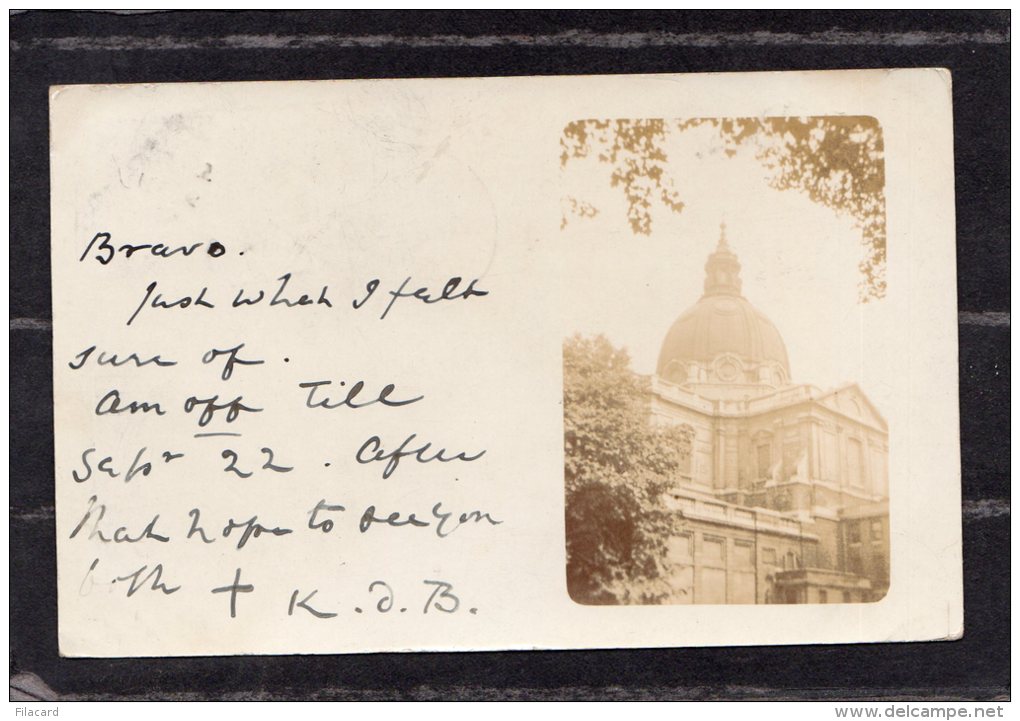 Bravo.
Just what I felt
sure of.
Am off Till
Sepr 22. After
that hope to see you
both + K.d.B.
Filacard
www.delcampe.net